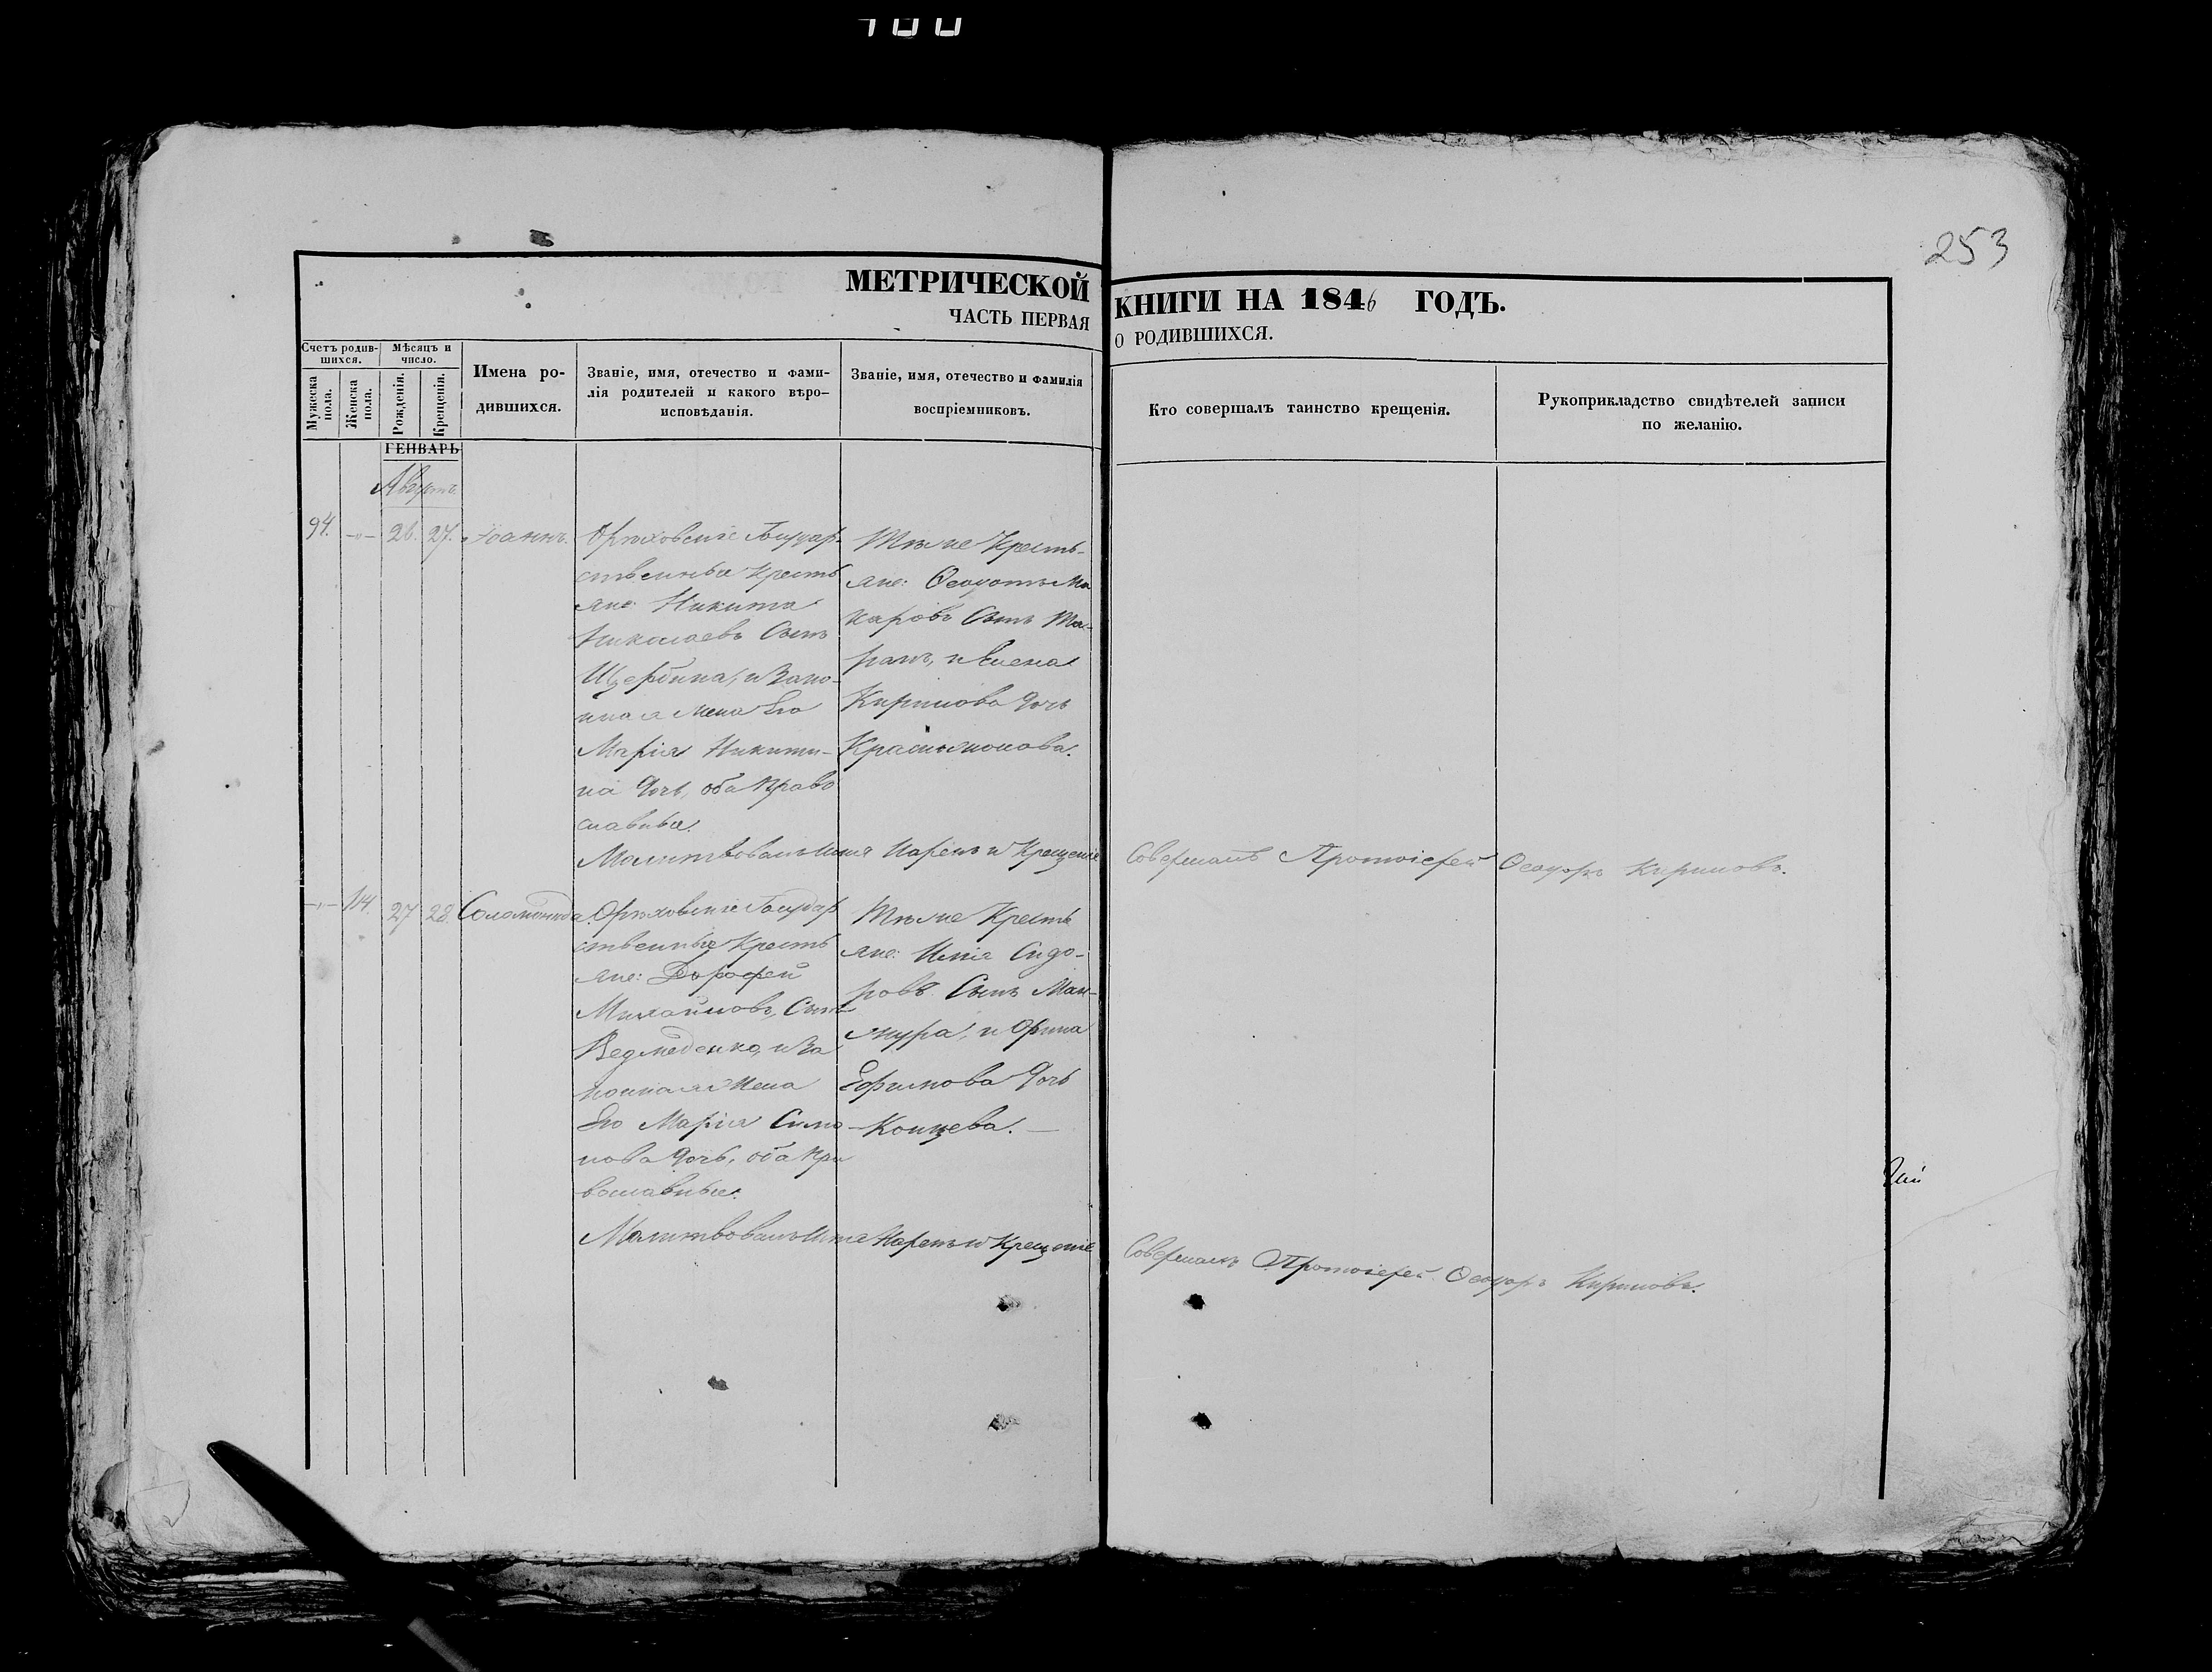 253
МЕТРИЧЕСКОЙ КНИГИ НА 1846 ГОДЪ.
ЧАСТЬ ПЕРВАЯ О РОДИВШИХСЯ.
Счетъ родив-
шихся.
Мужеска пола.
Женска пола.
Мѣсяцъ и
число.
Рожденія.
Крещенія.
Имена ро-
дившихся.
Званіе, имя, отечество и фами-
лія родителей и какого вѣро-
исповѣданія.
Званіе, имя, отечество и фамилія
воспріемниковъ.
Кто совершалъ таинство крещенія.
Рукоприкладство свидѣтелей записи
по желанію.
ГЕНВАРЬ
Августъ.
94. -„- 26. 27. Іоаннъ.
Орѣховскіе Государ-
ственные Кресть
яне: Никита
Николаевъ Сынъ
Щербина, и Зако-
нная жена Его
Марія Никити-
на дочь, оба Право
славные.
Тѣ же Кресть-
яне: Ѳеодотъ Ма
каровъ Сынъ
и Елена
Кирилова дочь
Молитвовалъ Имя Нарекъ и Крещеніе Совершалъ Протоіерей Ѳеодоръ Кириловъ.
-„- 104. 27 28. Соломонида.
Орѣховскіе Государ
ственные Кресть
яне: Дорофей
Михайловъ Сынъ
Ведмеденко, и За
конная жена
Его Марія Симо
нова дочь, оба Пра
вославные.
Тѣ же Кресть
яне: Илія Сидо-
ровъ Сынъ Ман-
жура, и Орина
Ефимова дочь
Концева.
Молитвовалъ Имя Нарекъ и Крещеніе Совершалъ Протоіерей Ѳеодоръ Кириловъ.